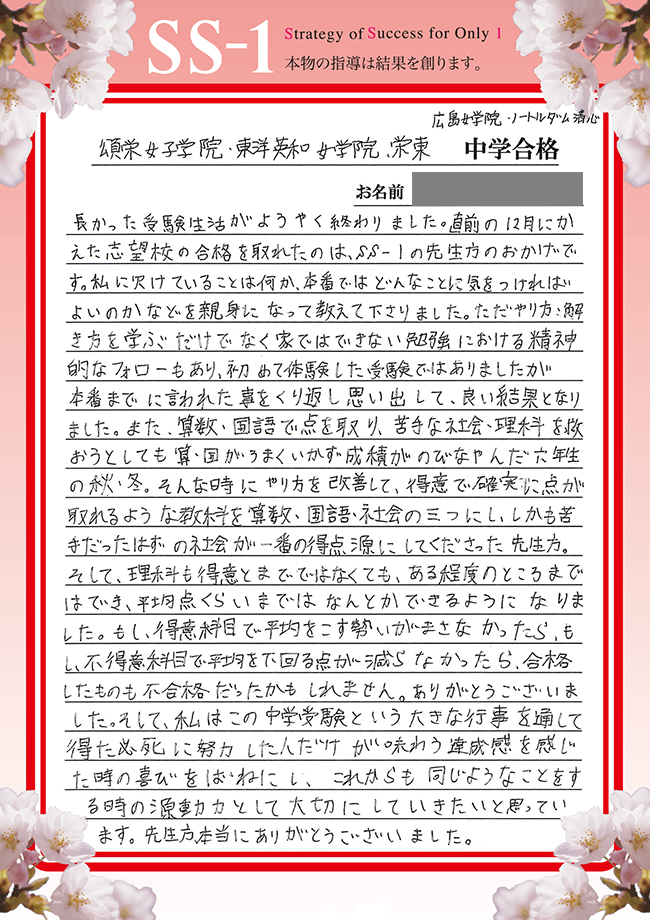 SS-1
Strategy of Success for Only 1
本物の指導は結果を創ります。
広島女学院・ノートルダム清心
頌栄女子学院・東洋英和女学院、栄東 中学合格
お名前
長かった受験生活がようやく終わりました。直前の12月にか
えた志望校の合格を取れたのは、SS-1の先生方のおかげで
す。私に欠けていることは何か、本番ではどんなことに気をつければ
よいのかなどを親身になって教えて下さりました。ただやり方・解
き方を学ぶだけでなく家ではできない勉強における精神
的なフォローもあり、初めて体験した受験ではありましたが
本番までに言われた事をくり返し思い出して、良い結果となり
ました。また、算数・国語で点を取り、苦手な社会・理科を救
おうとしても算・国がうまくいかず成績がのびなやんだ六年生
の秋・冬。そんな時にやり方を改善して、得意で確実に点が
取れるような教科を算数・国語・社会の三つにし、しかも苦
手だったはずの社会が一番の得点源にしてくださった先生方。
そして、理科も得意とまでではなくても、ある程度のところまで
はでき、平均点くらいまではなんとかできるようになりま
した。もし、得意科目で平均をこす勢いがまさなかったら、も
し、不得意科目で平均を下回る点が減らなかったら、合格
したものも不合格だったかもしれません。ありがとうございま
した。そして、私はこの中学受験という大きな行事を通して
得た必死に努力した人だけが味わう達成感を感じ
た時の喜びをばねにし、これからも同じようなことをす
る時の源動力として大切にしていきたいと思ってい
ます。先生方本当にありがとうございました。